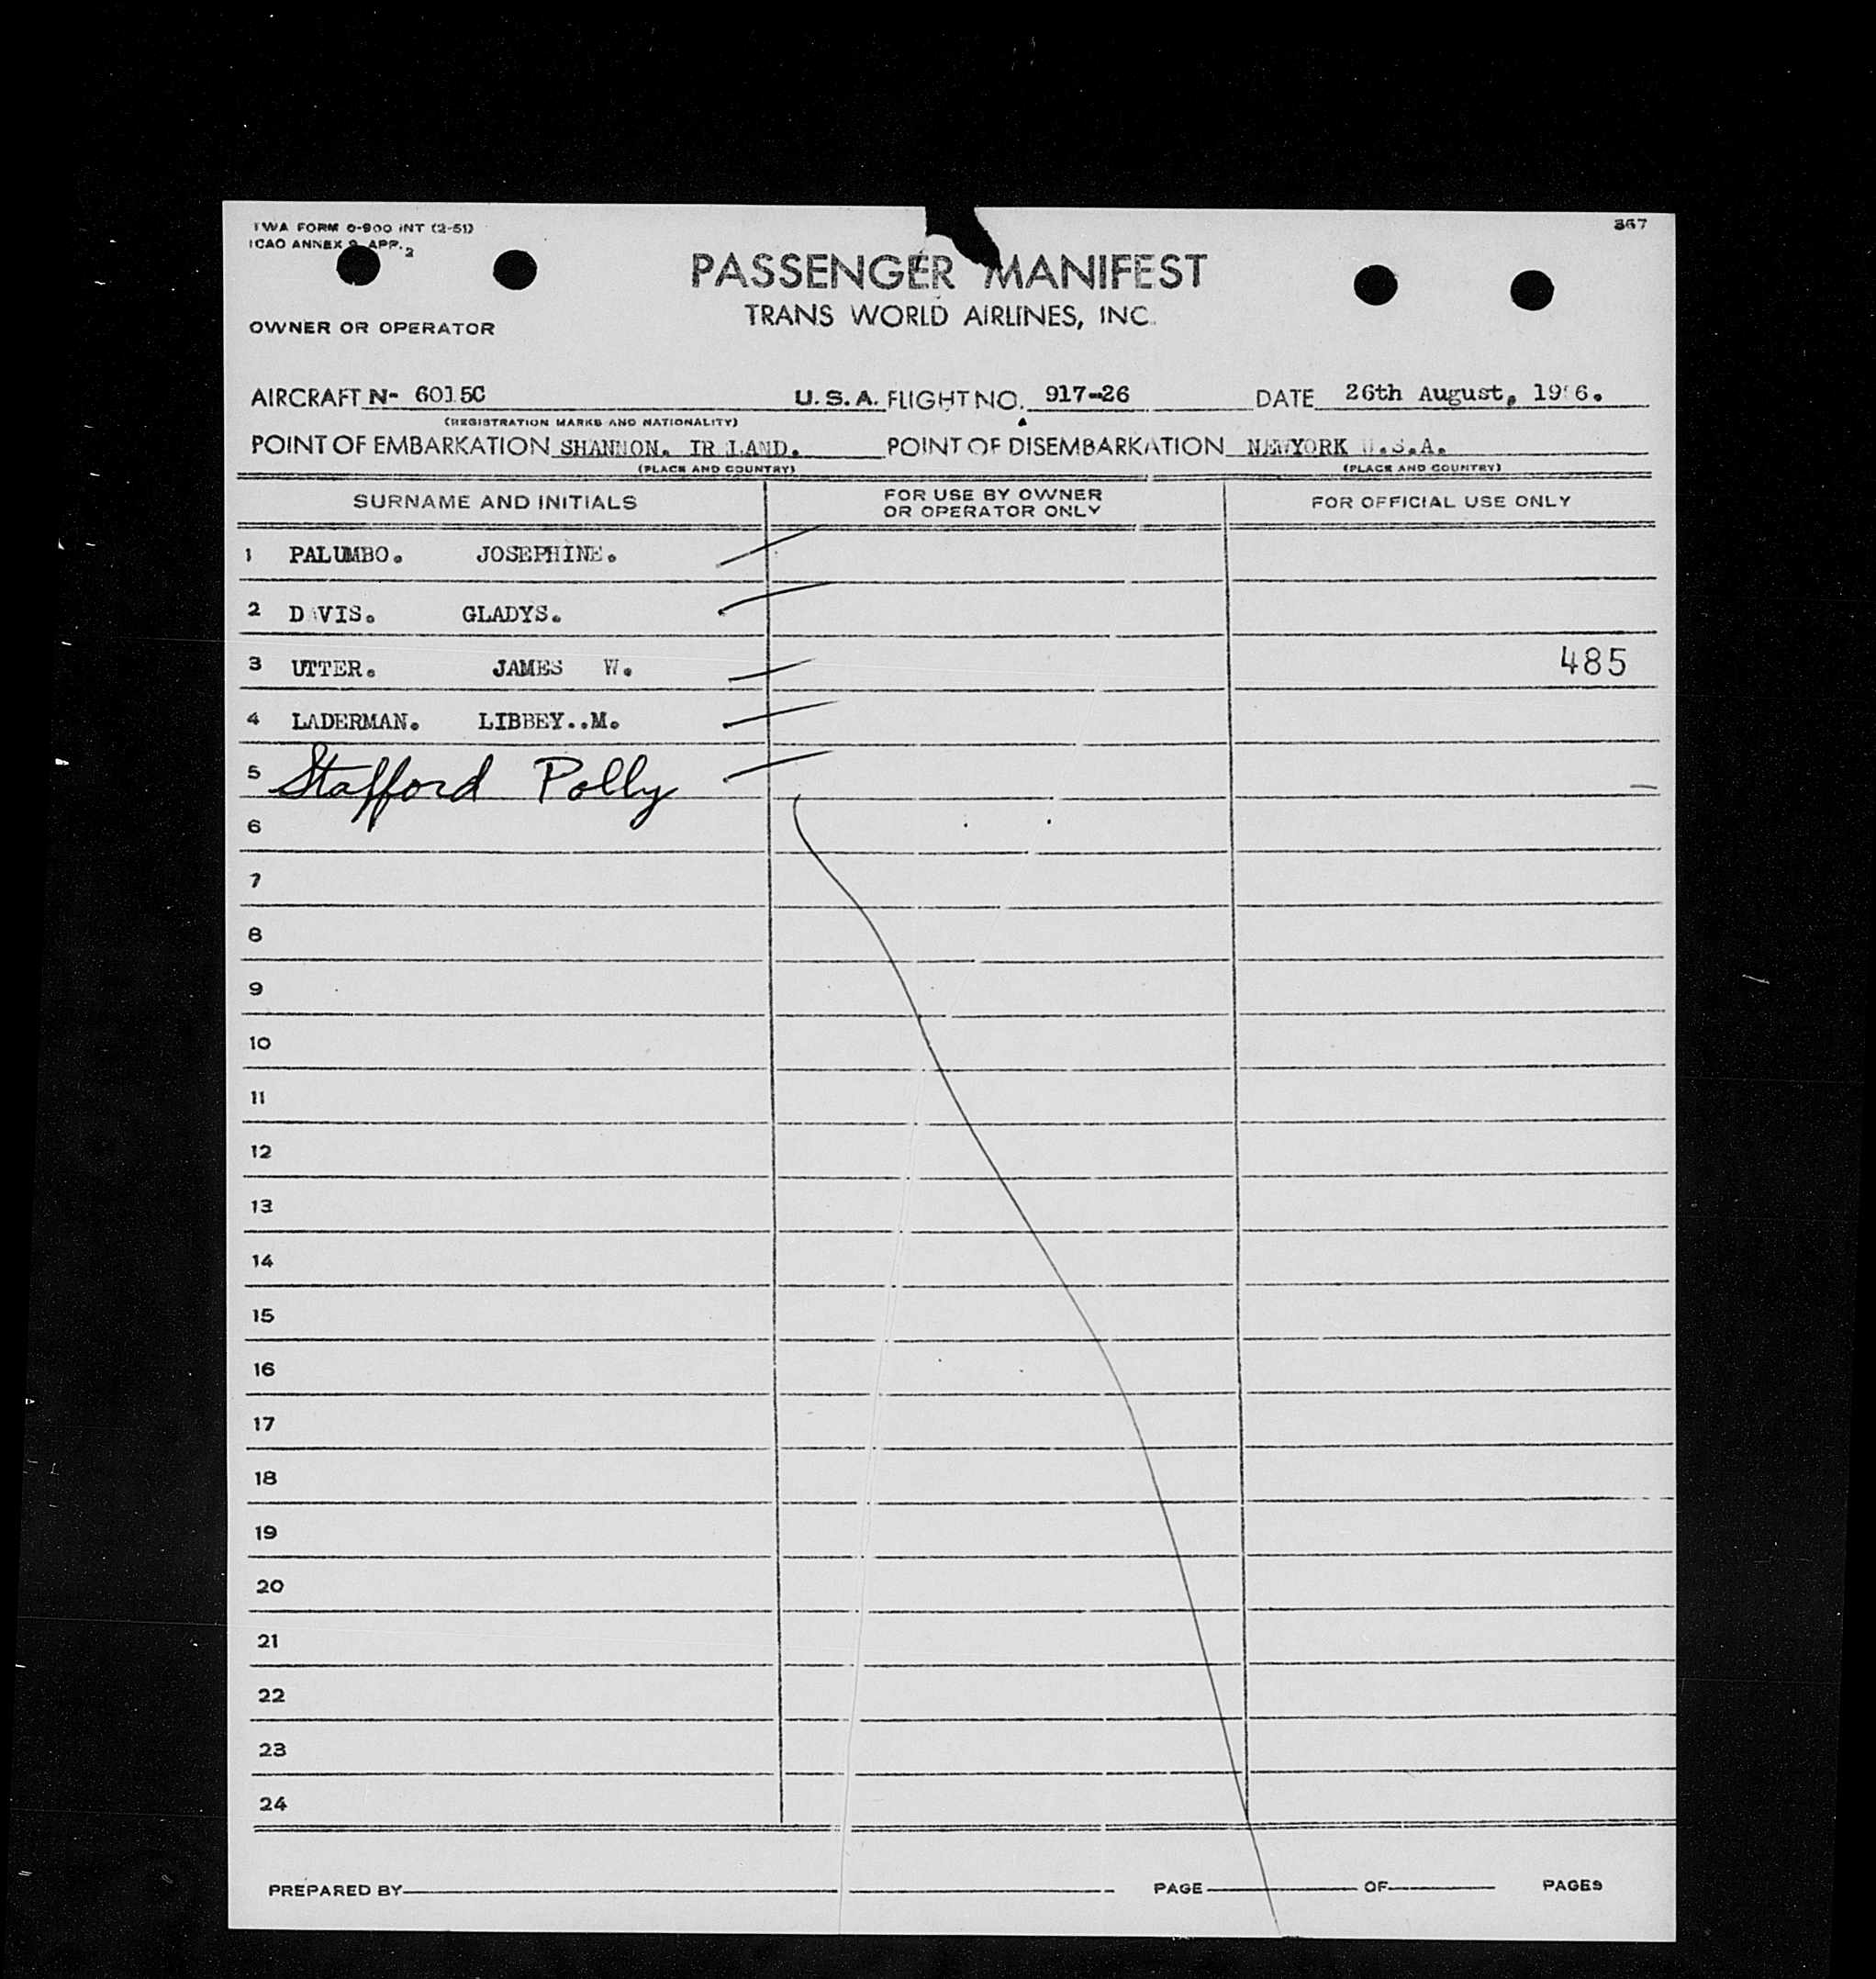 TWA FORM 0-900 INT (2-51)
367
ICAO ANNEX 9 APP. 2
PASSENGER MANIFEST
TRANS WORLD AIRLINES, INC.
OWNER OR OPERATOR
AIRCRAFT N- 6015C U.S.A. FLIGHT NO. 917-26 DATE 26th August, 19 6.
(REGISTRATION MARKS AND NATIONALITY)
POINT OF EMBARKATION SHANNON. IR LAND. POINT OF DISEMBARKATION NEWYORK U.S.A.
(PLACE AND COUNTRY) (PLACE AND COUNTRY)
SURNAME AND INITIALS FOR USE BY OWNER OR OPERATOR ONLY FOR OFFICIAL USE ONLY
1 PALUMBO. JOSEPHINE.
2 D VIS. GLADYS.
3 UTTER. JAMES W. 485
4 LADERMAN. LIBBEY..M.
5 Stafford Polly
6
7
8
9
10
11
12
13
14
15
16
17
18
19
20
21
22
23
24
PREPARED BY PAGE OF PAGES